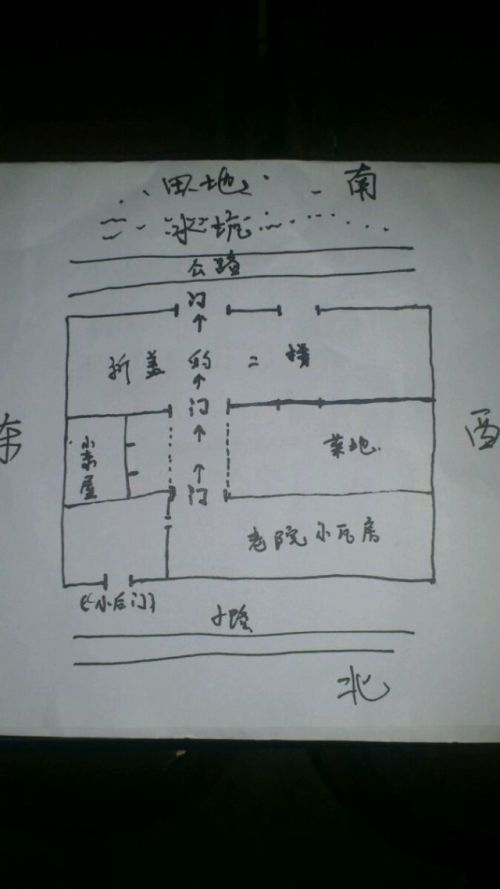 田地 南
水坑
公路
门
新盖的二楼
东 西
门
小东屋 菜地
门
老院小瓦房
(小后门)
小路
北